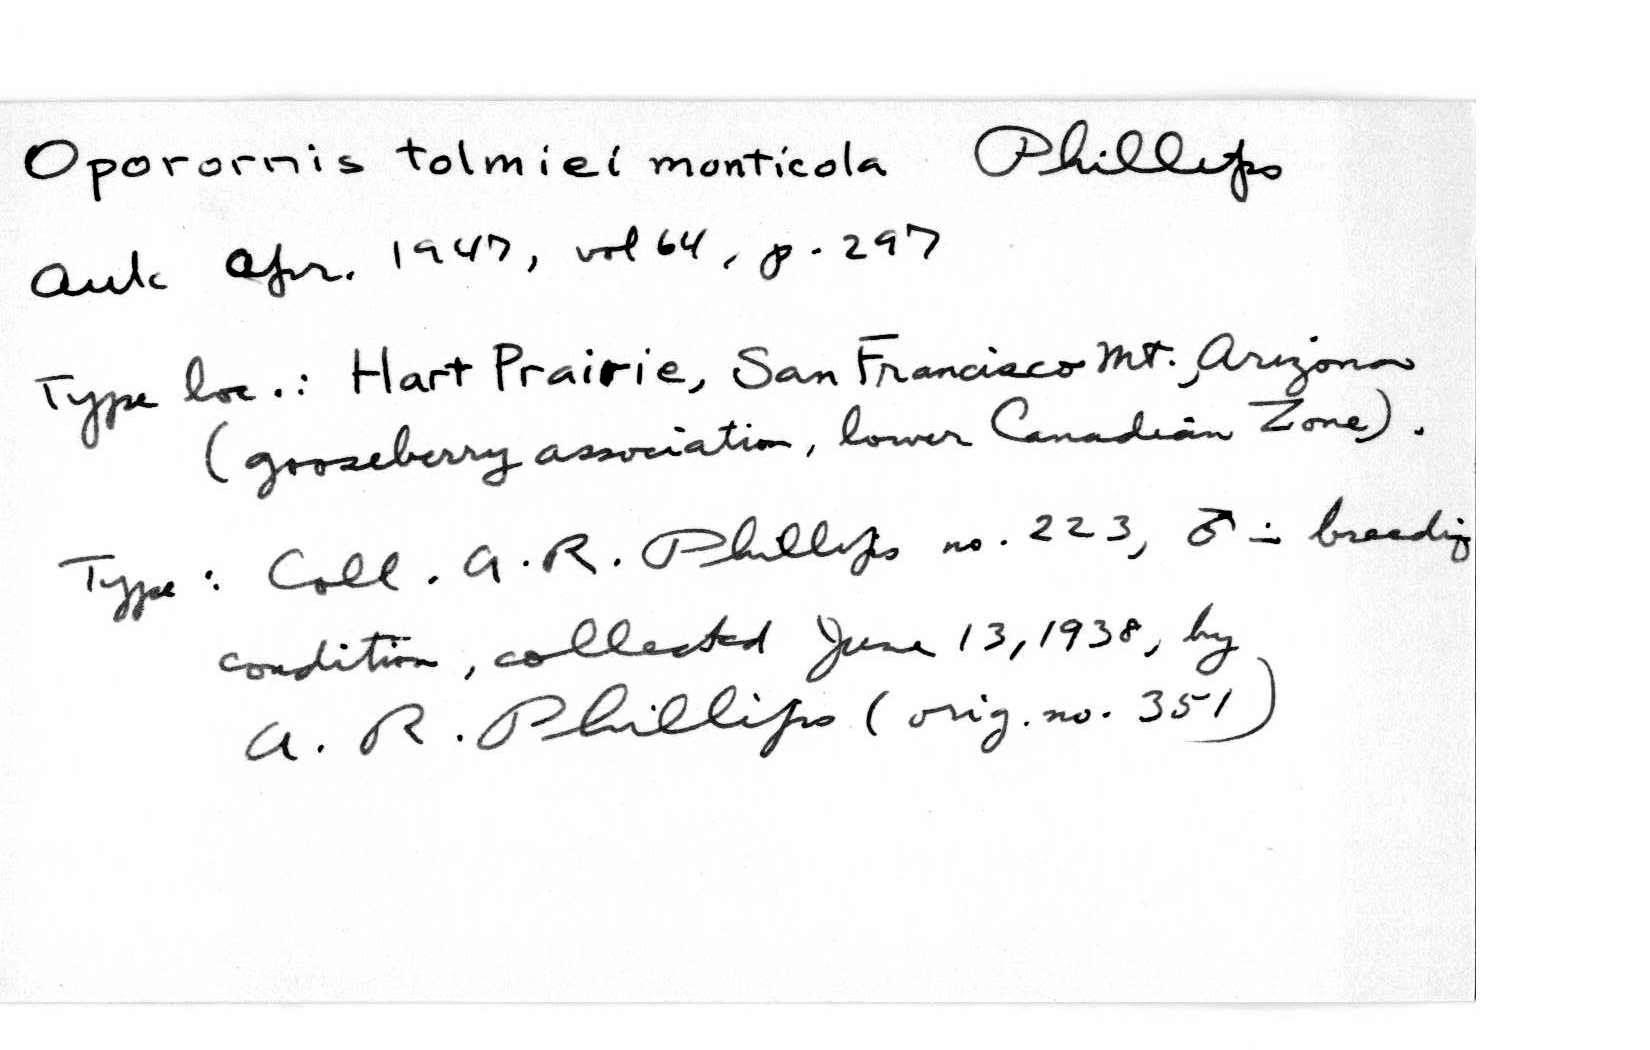 Oporornis tolmiei monticola Phillips
Auk Apr. 1947, vol 64, p. 297
Type loc.: Hart Prairie, San Francisco Mt., Arizona
(gooseberry association, lower Canadian Zone).
Type: Coll. A. R. Phillips no. 223, ♂ in breeding
condition, collected June 13, 1938, by
A. R. Phillips (orig. no. 351)